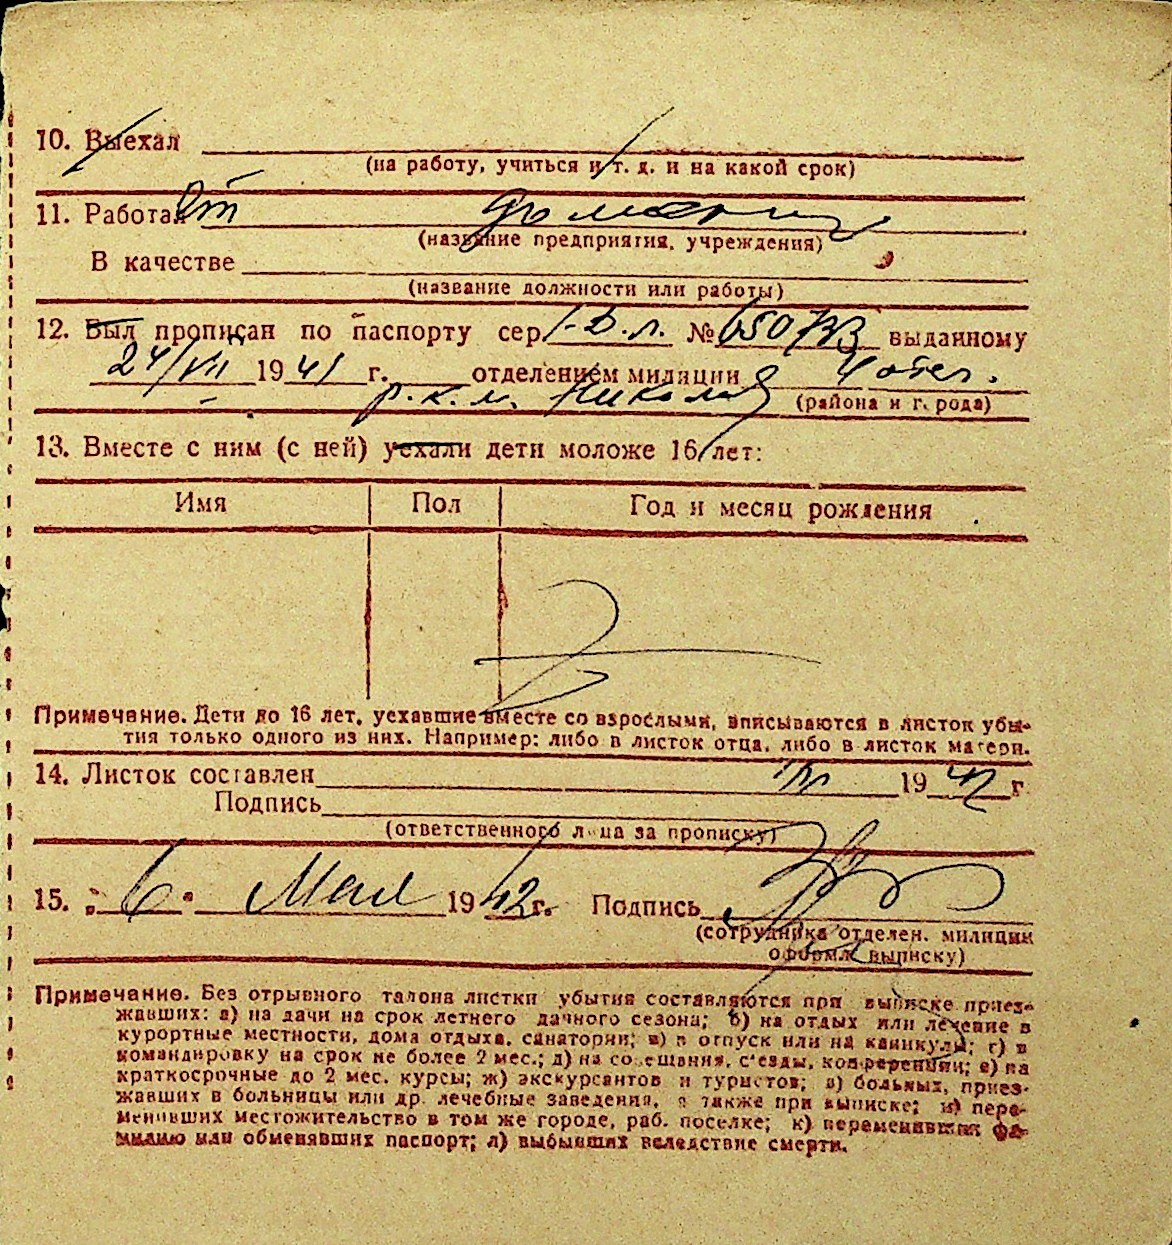 10. Выехал
(на работу, учиться и т. д. и на какой срок)
11. Работал
(название предприятия, учреждения)
В качестве
(название должности или работы)
12. Был прописан по паспорту сер. № выданному
24/VII 1941 г. отделением милиции
р.к.м. (района и города)
13. Вместе с ним (с ней) уехали дети моложе 16 лет:
Имя Пол Год и месяц рождения
Примечание. Дети до 16 лет, уехавшие вместе со взрослыми, вписываются в листок убы-
тия только одного из них. Например: либо в листок отца, либо в листок матери.
14. Листок составлен 1942 г
Подпись
(ответственного лица за прописку)
15. „6" Мая 1942 г. Подпись
(сотрудника отделен. милиции
оформл. выписку)
Примечание. Без отрывного талона листки убытия составляются при выписке приез-
жавших: а) на дачи на срок летнего дачного сезона; б) на отдых или лечение в
курортные местности, дома отдыха, санатории; в) в отпуск или на каникулы; г) в
командировку на срок не более 2 мес.; д) на совещания, с'езды, конференции; е) на
краткосрочные до 2 мес. курсы; ж) экскурсантов и туристов; з) больных, приез-
жавших в больницы или др. лечебные заведения, а также при выписке; и) пере-
менивших местожительство в том же городе, раб. поселке; к) переменивших фа-
милию или обменявших паспорт; л) выбывших вследствие смерти.